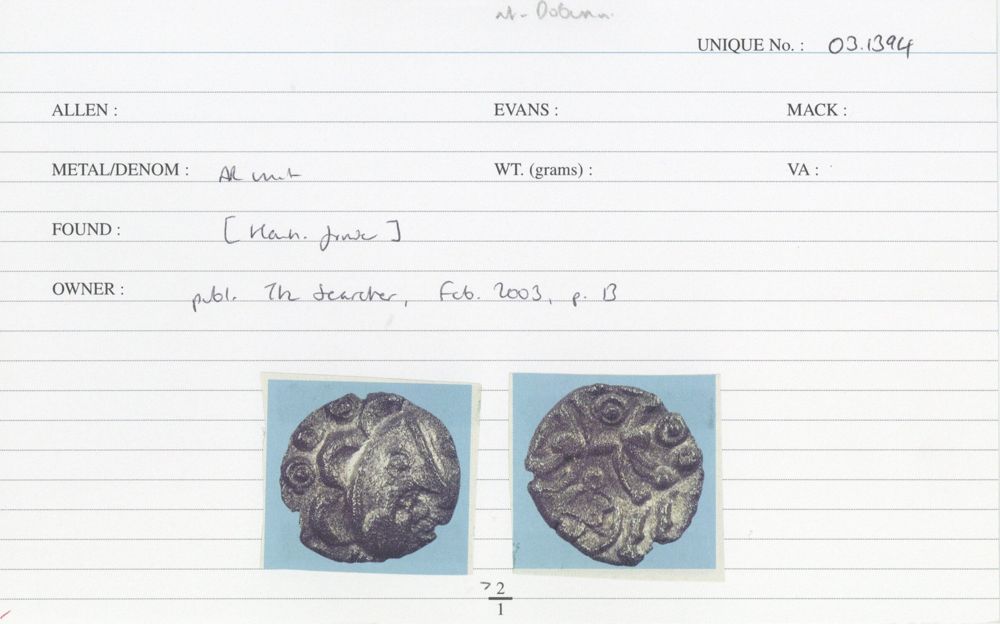 UNIQUE No. : 03.1394
ALLEN : EVANS : MACK :
METAL/DENOM : AR unit WT. (grams) : VA :
FOUND : [ ]
OWNER : publ. The Searcher, Feb. 2003, p. 13
> 2
1